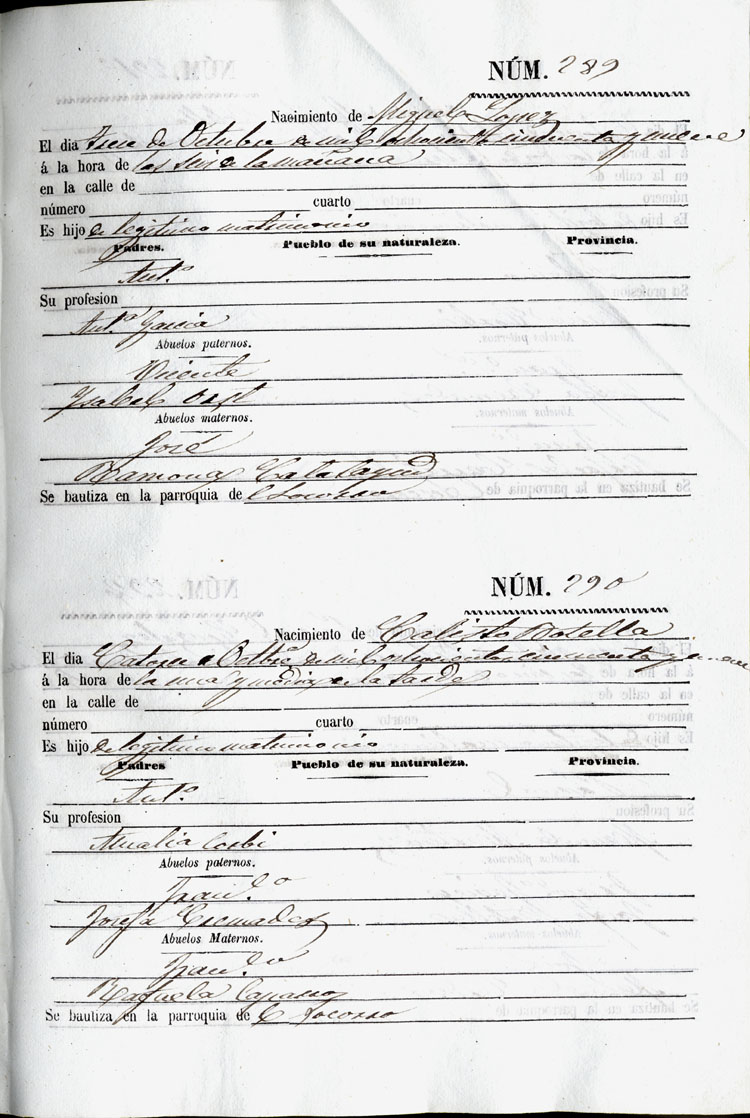 NÚM. 289
Nacimiento de Miguel Lopez
El dia trece de Octubre de mil ochocientos cincuenta y nueve
á la hora de las seis de la mañana
en la calle de
número cuarto
Es hijo de legitimo matrimonio
Padres. Pueblo de su naturaleza. Provincia.
Ant.º
Su profesion
Ant.ª Garcia
Abuelos paternos.
Vicente
Ysabel
Abuelos maternos.
José
Ramona Calatayud
Se bautiza en la parroquia de el Socorro
NÚM. 290
Nacimiento de Calisto Botella
El dia Catorce de Octbre de mil ochocientos cincuenta y nueve
á la hora de la una y media de la tarde
en la calle de
número cuarto
Es hijo de legitimo matrimonio
Padres Pueblo de su naturaleza. Provincia.
Ant.º
Su profesion
Amalia Corbi
Abuelos paternos.
Fran.co
Josefa Cremades
Abuelos Maternos.
Fran.co
Rafaela
Se bautiza en la parroquia de el Socorro